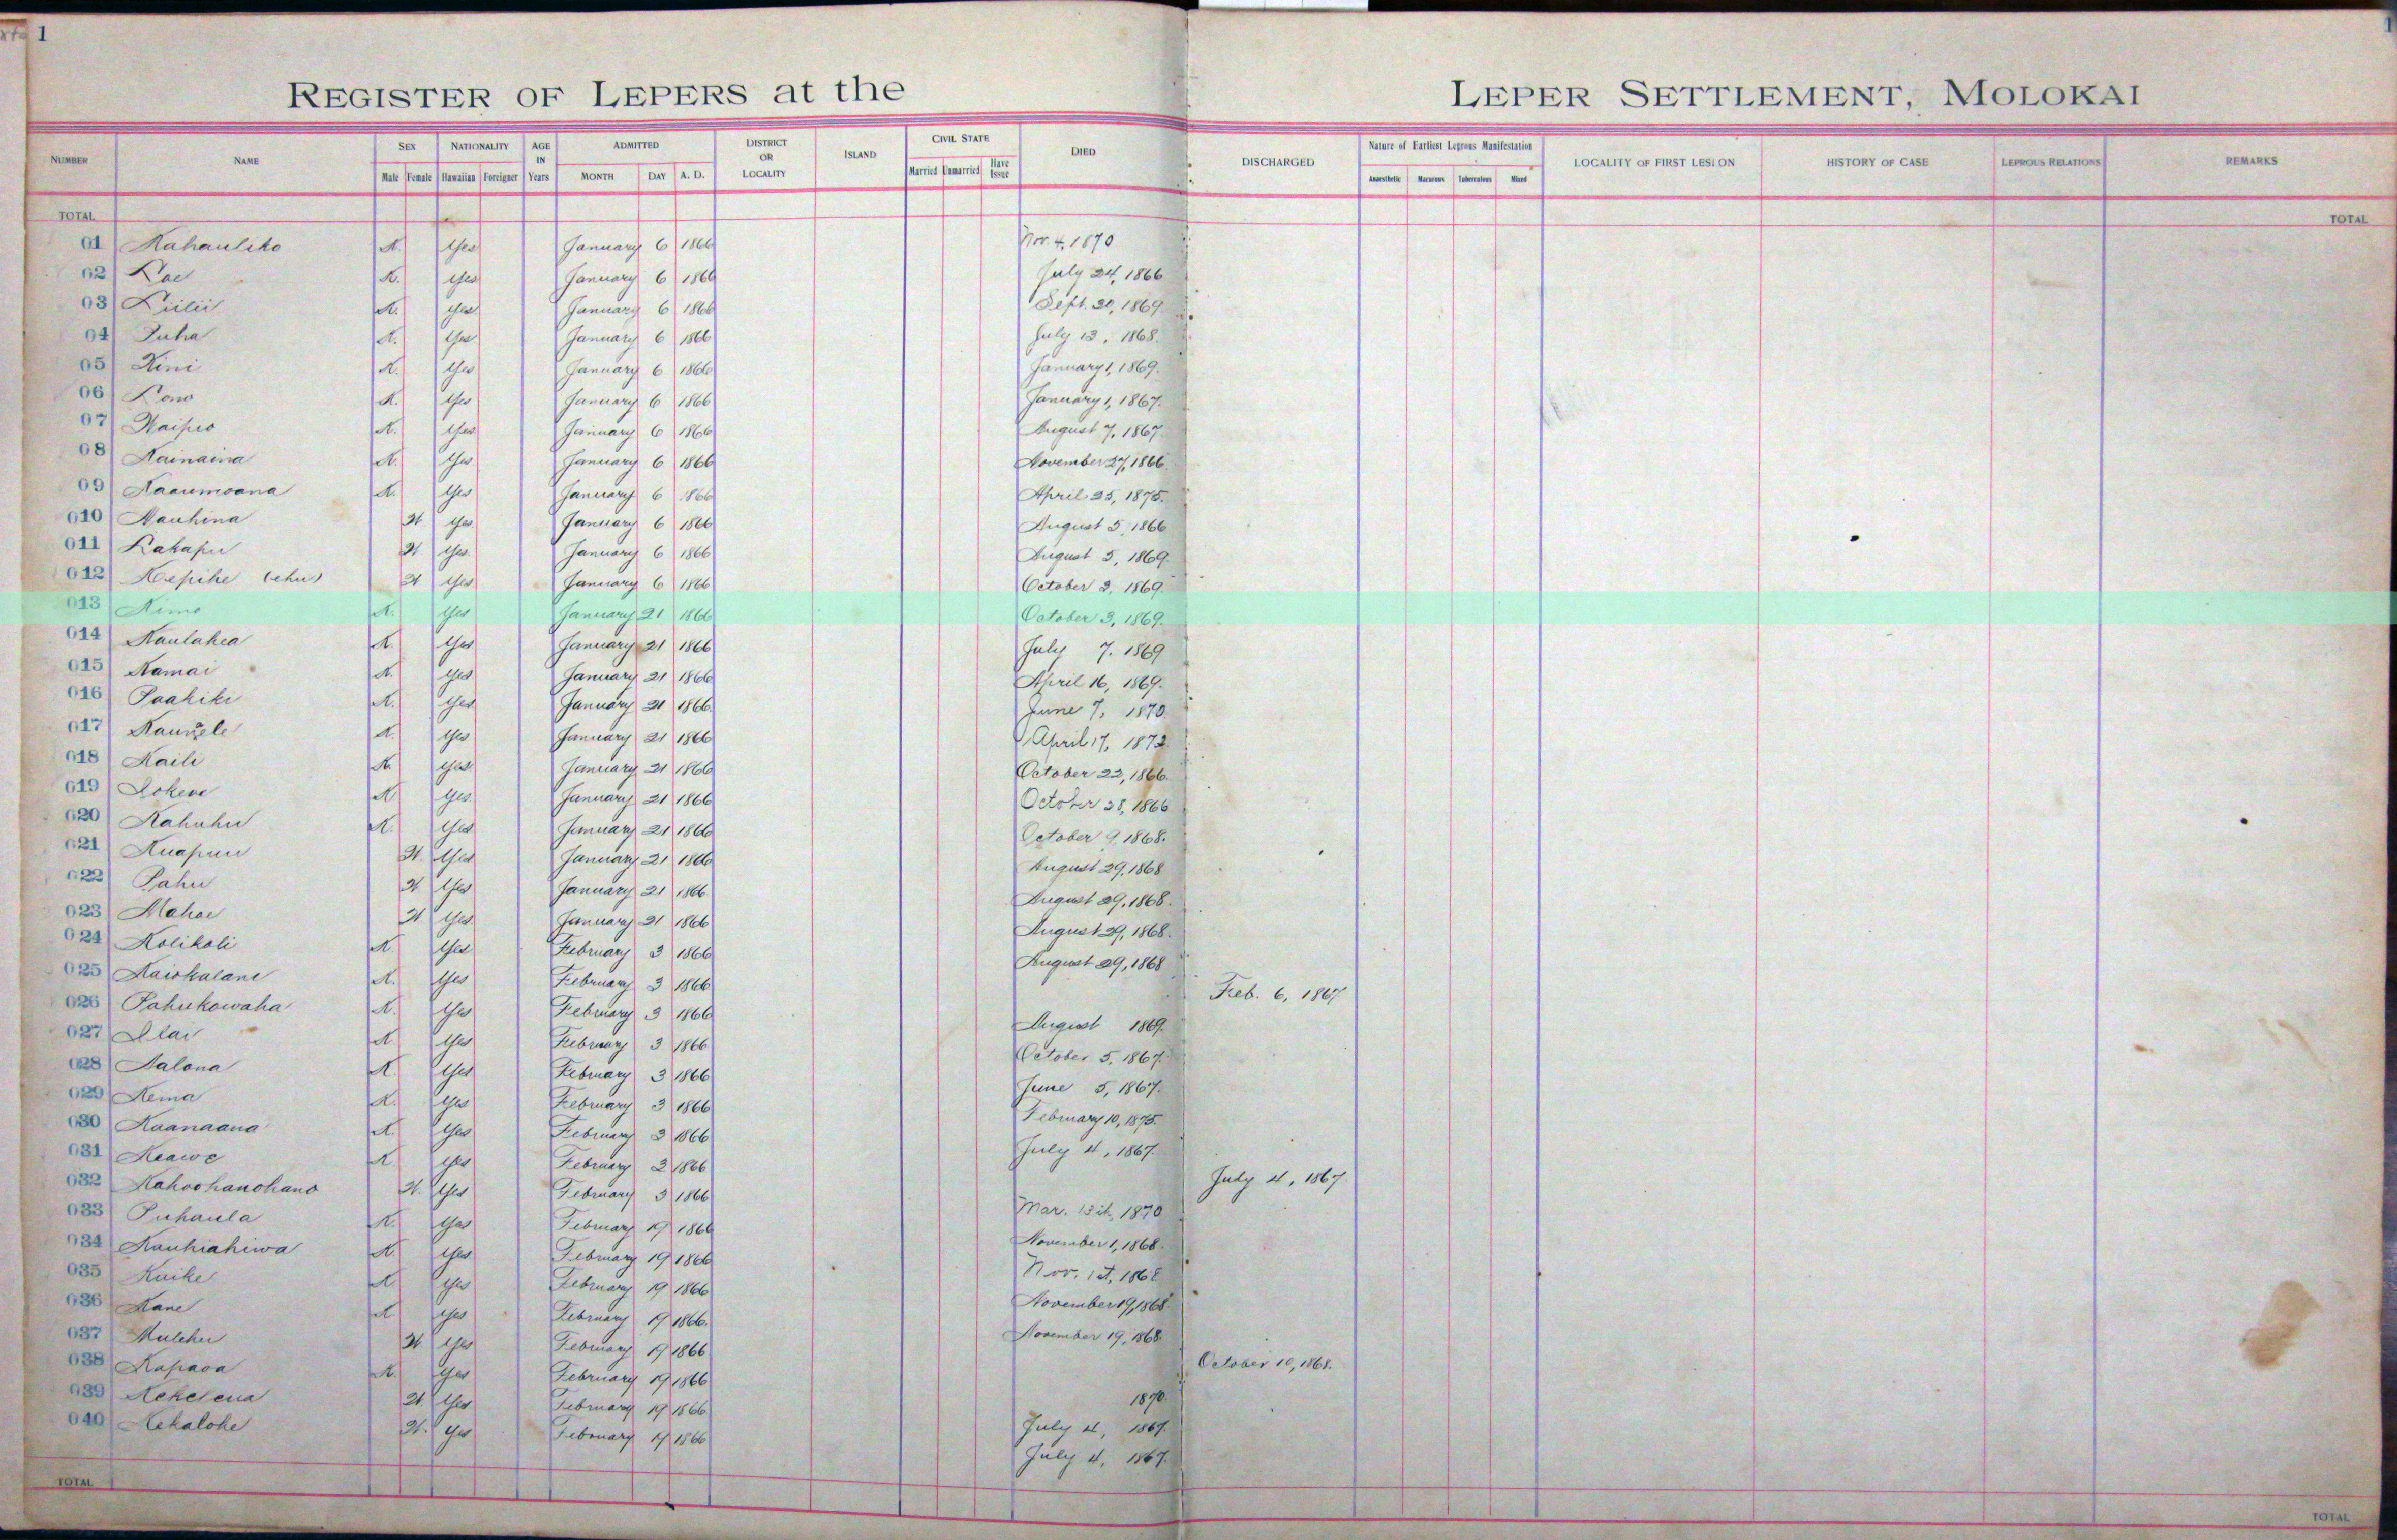 1
REGISTER OF LEPERS at the LEPER SETTLEMENT, MOLOKAI
NUMBER NAME SEX NATIONALITY AGE IN Years ADMITTED DISTRICT OR LOCALITY ISLAND CIVIL STATE DIED DISCHARGED Nature of Earliest Leprous Manifestation LOCALITY OF FIRST LESION HISTORY OF CASE LEPROUS RELATIONS REMARKS
Male Female Hawaiian Foreigner MONTH DAY A. D. Married Unmarried Have Issue Anaesthetic Macurous Tuberculous Mixed
TOTAL TOTAL
01 Kahauliko K. Yes January 6 1866 Nov. 4, 1870
02 Loe K. Yes January 6 1866 July 24, 1866
03 Liilii K. Yes January 6 1866 Sept. 30, 1869.
04 Puha K. Yes January 6 1866 July 13, 1868.
05 Kini K. Yes January 6 1866 January 1, 1869.
06 Lono K. Yes January 6 1866 January 1, 1867.
07 Waipio K. Yes January 6 1866 August 7, 1867.
08 Kainaina K. Yes January 6 1866 November 27, 1866.
09 Kaaumoana K. Yes January 6 1866 April 25, 1875.
010 Nauhina W Yes January 6 1866 August 5, 1866
011 Lakapu W Yes January 6 1866 August 5, 1869.
012 Kepihe (ehu) W Yes January 6 1866 October 3, 1869.
013 Kimo K. Yes January 21 1866 October 3, 1869.
014 Kaulahea K. Yes January 21 1866 July 7. 1869
015 Kamai K. Yes January 21 1866 April 16, 1869.
016 Paakiki K. Yes January 21 1866. June 7, 1870.
017 K. Yes January 21 1866 April 17, 1872
018 Kaili K Yes January 21 1866 October 23, 1866.
019 Lokene K Yes January 21 1866 October 28, 1866
020 Kahuhu K. Yes January 21 1866 October 9, 1868.
021 Kuapuu W. Yes January 21 1866 August 29, 1868
022 Pahu W Yes January 21 1866 August 29, 1868.
023 Mahoe W Yes January 21 1866 August 29, 1868.
024 Kolikoli K. Yes February 3 1866 August 29, 1868
025 Kaiokalani K. Yes February 3 1866 Feb. 6, 1867
026 Pahukowaha K. Yes February 3 1866 August 1869.
027 Ilai K Yes February 3 1866 October 5, 1867.
028 Aalona K. Yes February 3 1866 June 5, 1867.
029 Kema K. Yes February 3 1866 February 10, 1875.
030 Kaanaana K. Yes February 3 1866 July 4, 1867.
031 Keawe K Yes February 3 1866 July 4, 1867
032 Kahoohanohano W. Yes February 3 1866 Mar. 13th, 1870
033 Puhaula K. Yes February 19 1866 November 1, 1868.
034 Kauhiahiwa K. Yes February 19 1866 Nov. 1st, 1868
035 Kuike K Yes February 19 1866 November 19, 1868
036 Kane K Yes February 19 1866. November 19, 1868.
037 Mulehu W Yes February 19 1866 October 10, 1868.
038 Kapaoa K. Yes February 19 1866 1870.
039 Kekelena W Yes February 19 1866 July 4, 1867.
040 Kekalohe W. Yes February 19 1866 July 4, 1867.
TOTAL TOTAL